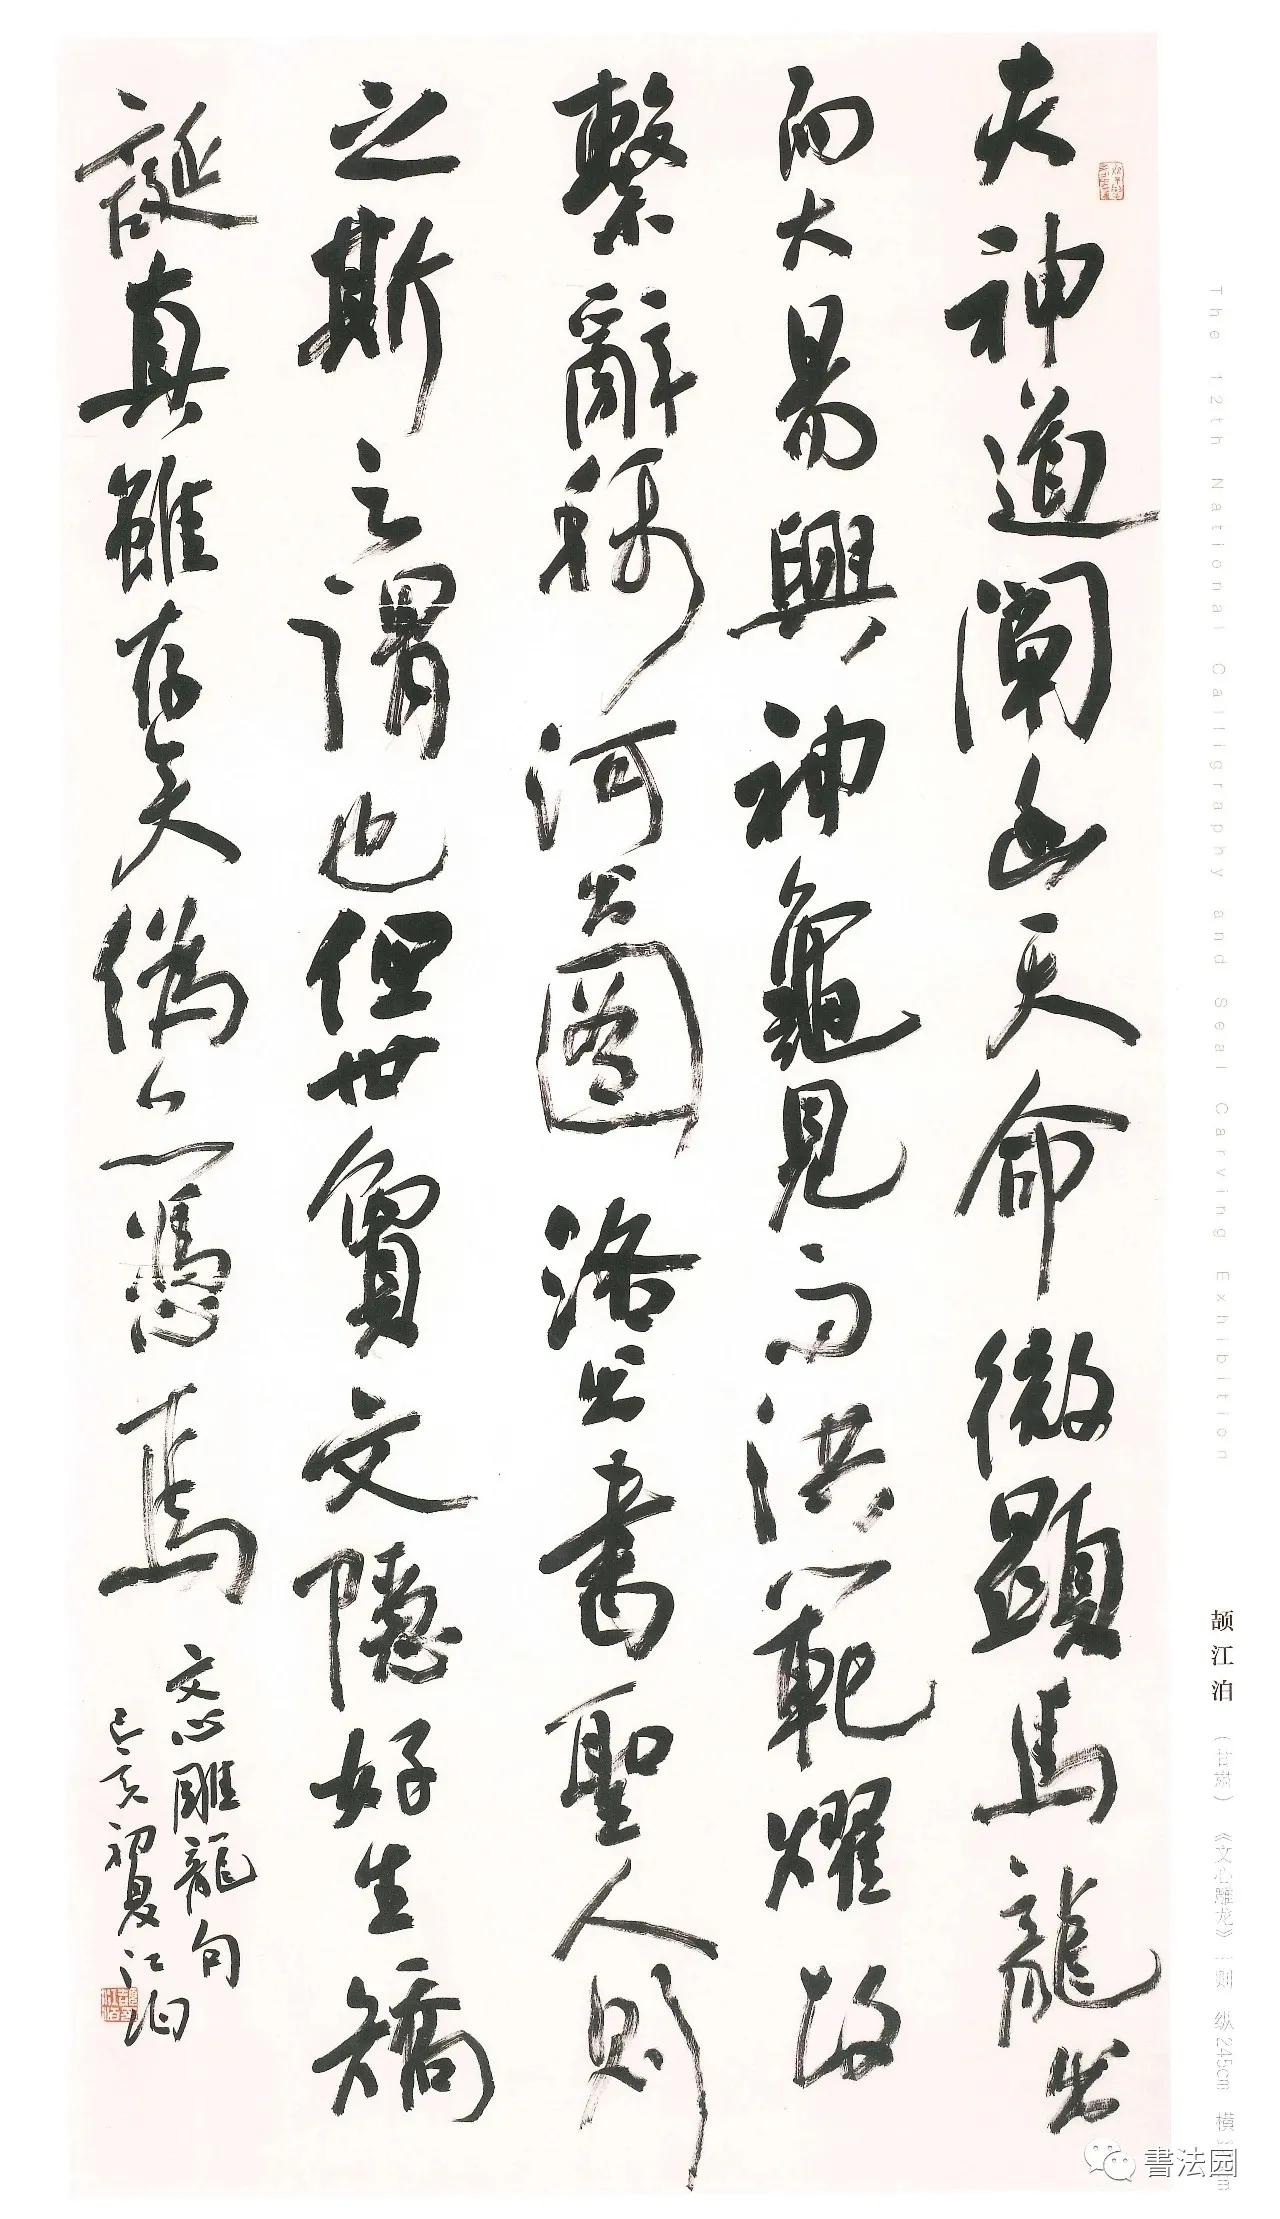 夫神道阐幽天命微顯馬龍出
而大易興神龜見而洪範耀故
繫辭稱河出圖洛出書聖人則
之斯之謂也但世敻文隱好生矯
誕真雖存矣偽亦憑焉
文心雕龍句
己亥初夏江泊
The 12th National Calligraphy and Seal Carving Exhibition
颉江泊（甘肃）《文心雕龙》一则 纵245cm 横
書法园